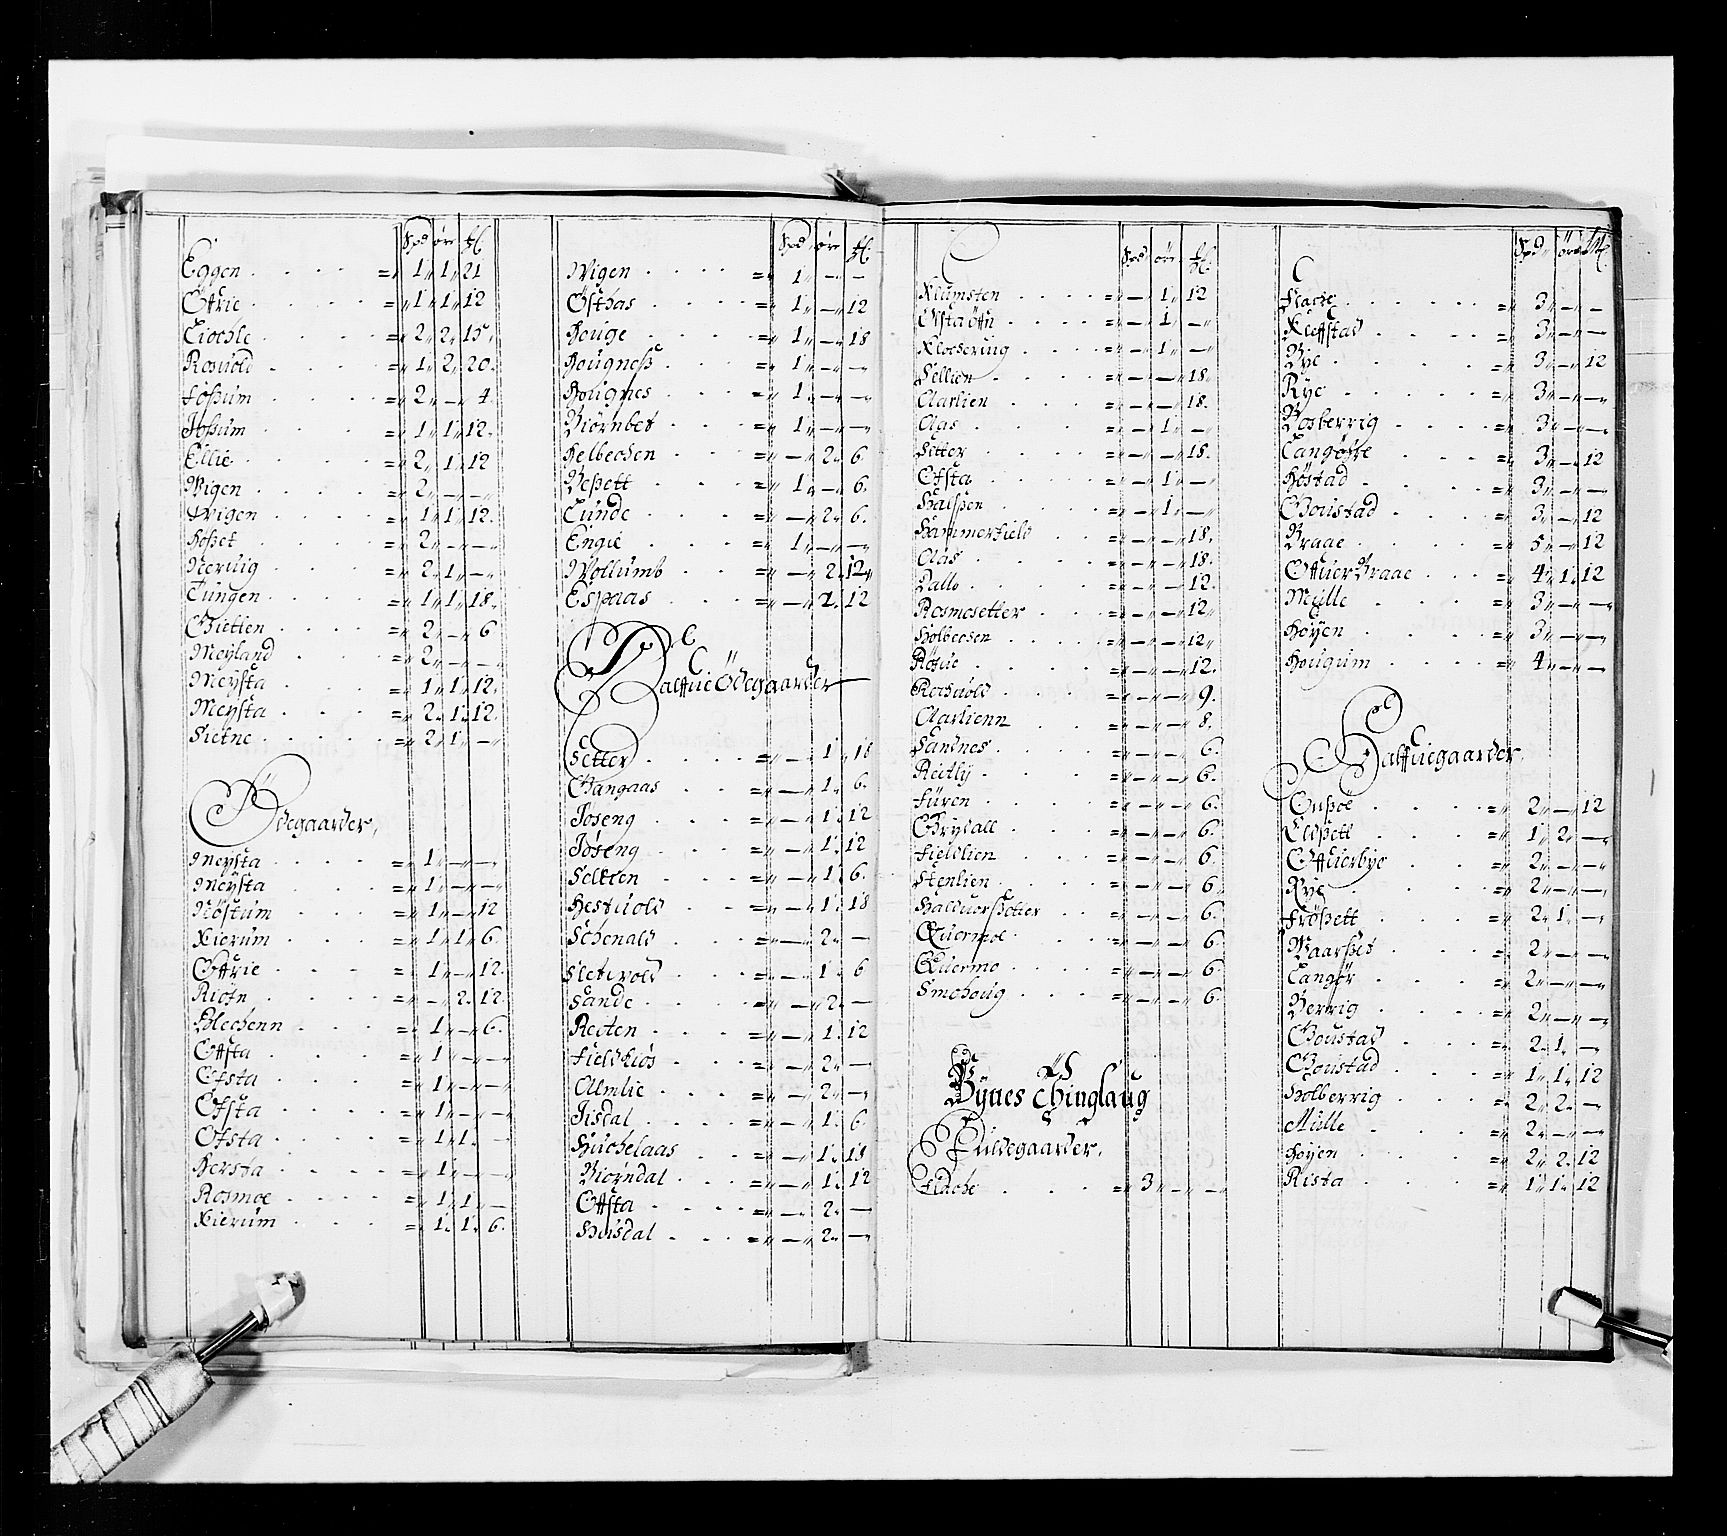 Spd øre ₰
Eggen = 1 „ 1 „ 21
Öffrie = 1 „ 1 „ 12
Eiochle = 2 „ 2 „ 15
Rosuold = 1 „ 2 „ 20
Foßum = 2 „ — „ 4
Joßum = 1 „ 1 „ 12
Ellie = 2 „ 1 „ 12
Wigen = 2 „ — „ —
Wigen = 1 „ 1 „ 12
Hoßet = 2 „ — „ —
Neruig = 2 „ 1 „ —
Tungen = 1 „ 1 „ 18
Gietten = 2 „ — „ 6
Meyland = 2 „ — „ —
Meysta = 1 „ 1 „ 12
Meysta = 2 „ 1 „ 12
Sietne = 2 „ 1 „ —
Ödegaarder,
Meysta = 1 „ — „ —
Meysta = 1 „ — „ —
Nöstum = 1 „ — „ 12
Kierum = 1 „ 1 „ 6
Öffrie = 1 „ — „ 12
Riötn = — „ 2 „ 12
Blechenn = 1 „ — „ 6
Offsta = 1 „ — „ —
Efsta = 1 „ — „ —
Ofsta = 1 „ — „ —
Ofsta = 1 „ 1 „ —
Hersta = 1 „ — „ —
Rosmoe = 1 „ 1 „ —
Kierum = 1 „ 1 „ 6
Spd øre ₰
Wigen = 1 „ — „ —
Östhas = 1 „ — „ 12
Houge = 1 „ — „ 18
Hougneß = 1 „ — „ —
Hougnes = 1 „ — „ —
Biörnbet = 1 „ — „ —
Helbechen = — „ 2 „ 6
Beßett = 1 „ — „ 6
Lunde = — „ 2 „ 6
Engie = 1 „ — „ —
Wollumb = — „ 2 „ 12
Espaas = — „ 2 „ 12
Halffue Ödegaarder
Setter = — „ 1 „ 18
Gangaas = — „ 1 „ 6
Jöseng = — „ 1 „ 12
Jöseng = — „ 1 „ 12
Selkien = — „ 1 „ 6
Hestuold = — „ 1 „ 18
Schenald = — „ 2 „ —
Sletwold = — „ 1 „ 6
Sande = — „ 2 „ —
Reiten = — „ 1 „ 12
Fieldkiøs = — „ 2 „ —
Almlie = — „ 2 „ —
Jisdal = — „ 1 „ 6
Huchelaas = — „ 1 „ 18
Biørndal = — „ 1 „ 12
Offsta = — „ 2 „ —
Husdal = — „ 2 „ —
Spd øre ₰
Klumsten = — „ 1 „ 12
= — „ 1 „ —
Klocherug = — „ 1 „ —
Sellien = — „ — „ 18
Aarlien = — „ — „ 18
Aas = — „ 1 „ —
Setter = — „ — „ 18
Efsta = — „ 1 „ —
Halßen = — „ 1 „ —
Hammerfield = — „ — „ 18
Aas = — „ — „ 18
Dallo = — „ — „ 12
Rosmosetter = — „ — „ 12
Holbechen = — „ — „ 12
Röfue = — „ — „ 12
Rochuold = — „ — „ 9
Aarlienn = — „ — „ 8
Sandnes = — „ — „ 6
Reitly = — „ — „ 6
Furen = — „ — „ 6
Grydall = — „ — „ 6
Fieldlien = — „ — „ 6
Stenlien = — „ — „ 6
Halduorßetter = — „ — „ 6
Quermoe = — „ — „ 6
Quermo = — „ — „ 6
Smohoug = — „ — „ 6
Bynes Thinglaug
Fuldegaarder.
Flache = 3 „ — „ —
Spd øre ₰
Flache = 3 „ — „ —
Kleffstad = 3 „ — „ —
Bye = 3 „ — „ 12
Rye = 3 „ — „ —
Bosberrig = 3 „ — „ —
Langørre = 3 „ — „ 12
Höstad = 3 „ — „ —
Goustad = 3 „ — „ 12
Braae = 5 „ — „ 12
Offuer Braae = 4 „ 1 „ 12
Mülle = 3 „ — „ —
Høyen = 3 „ — „ —
Hougum = 4 „ — „ —
Halffuegaarder.
Onßoe = 2 „ — „ 12
Eldßett = 1 „ 2 „ —
Offuerbye = 2 „ — „ —
Rye = 2 „ — „ —
Frößett = 2 „ 1 „ —
Waarßet = 2 „ — „ —
Langør = 2 „ — „ —
Berrig = 2 „ — „ —
Goustad = 2 „ 1 „ —
Goustad = 1 „ 1 „ 12
Holberrig = 2 „ 2 „ —
Mülle = 2 „ — „ —
Høyen = 2 „ 2 „ 12
Rista = 1 „ 1 „ 12